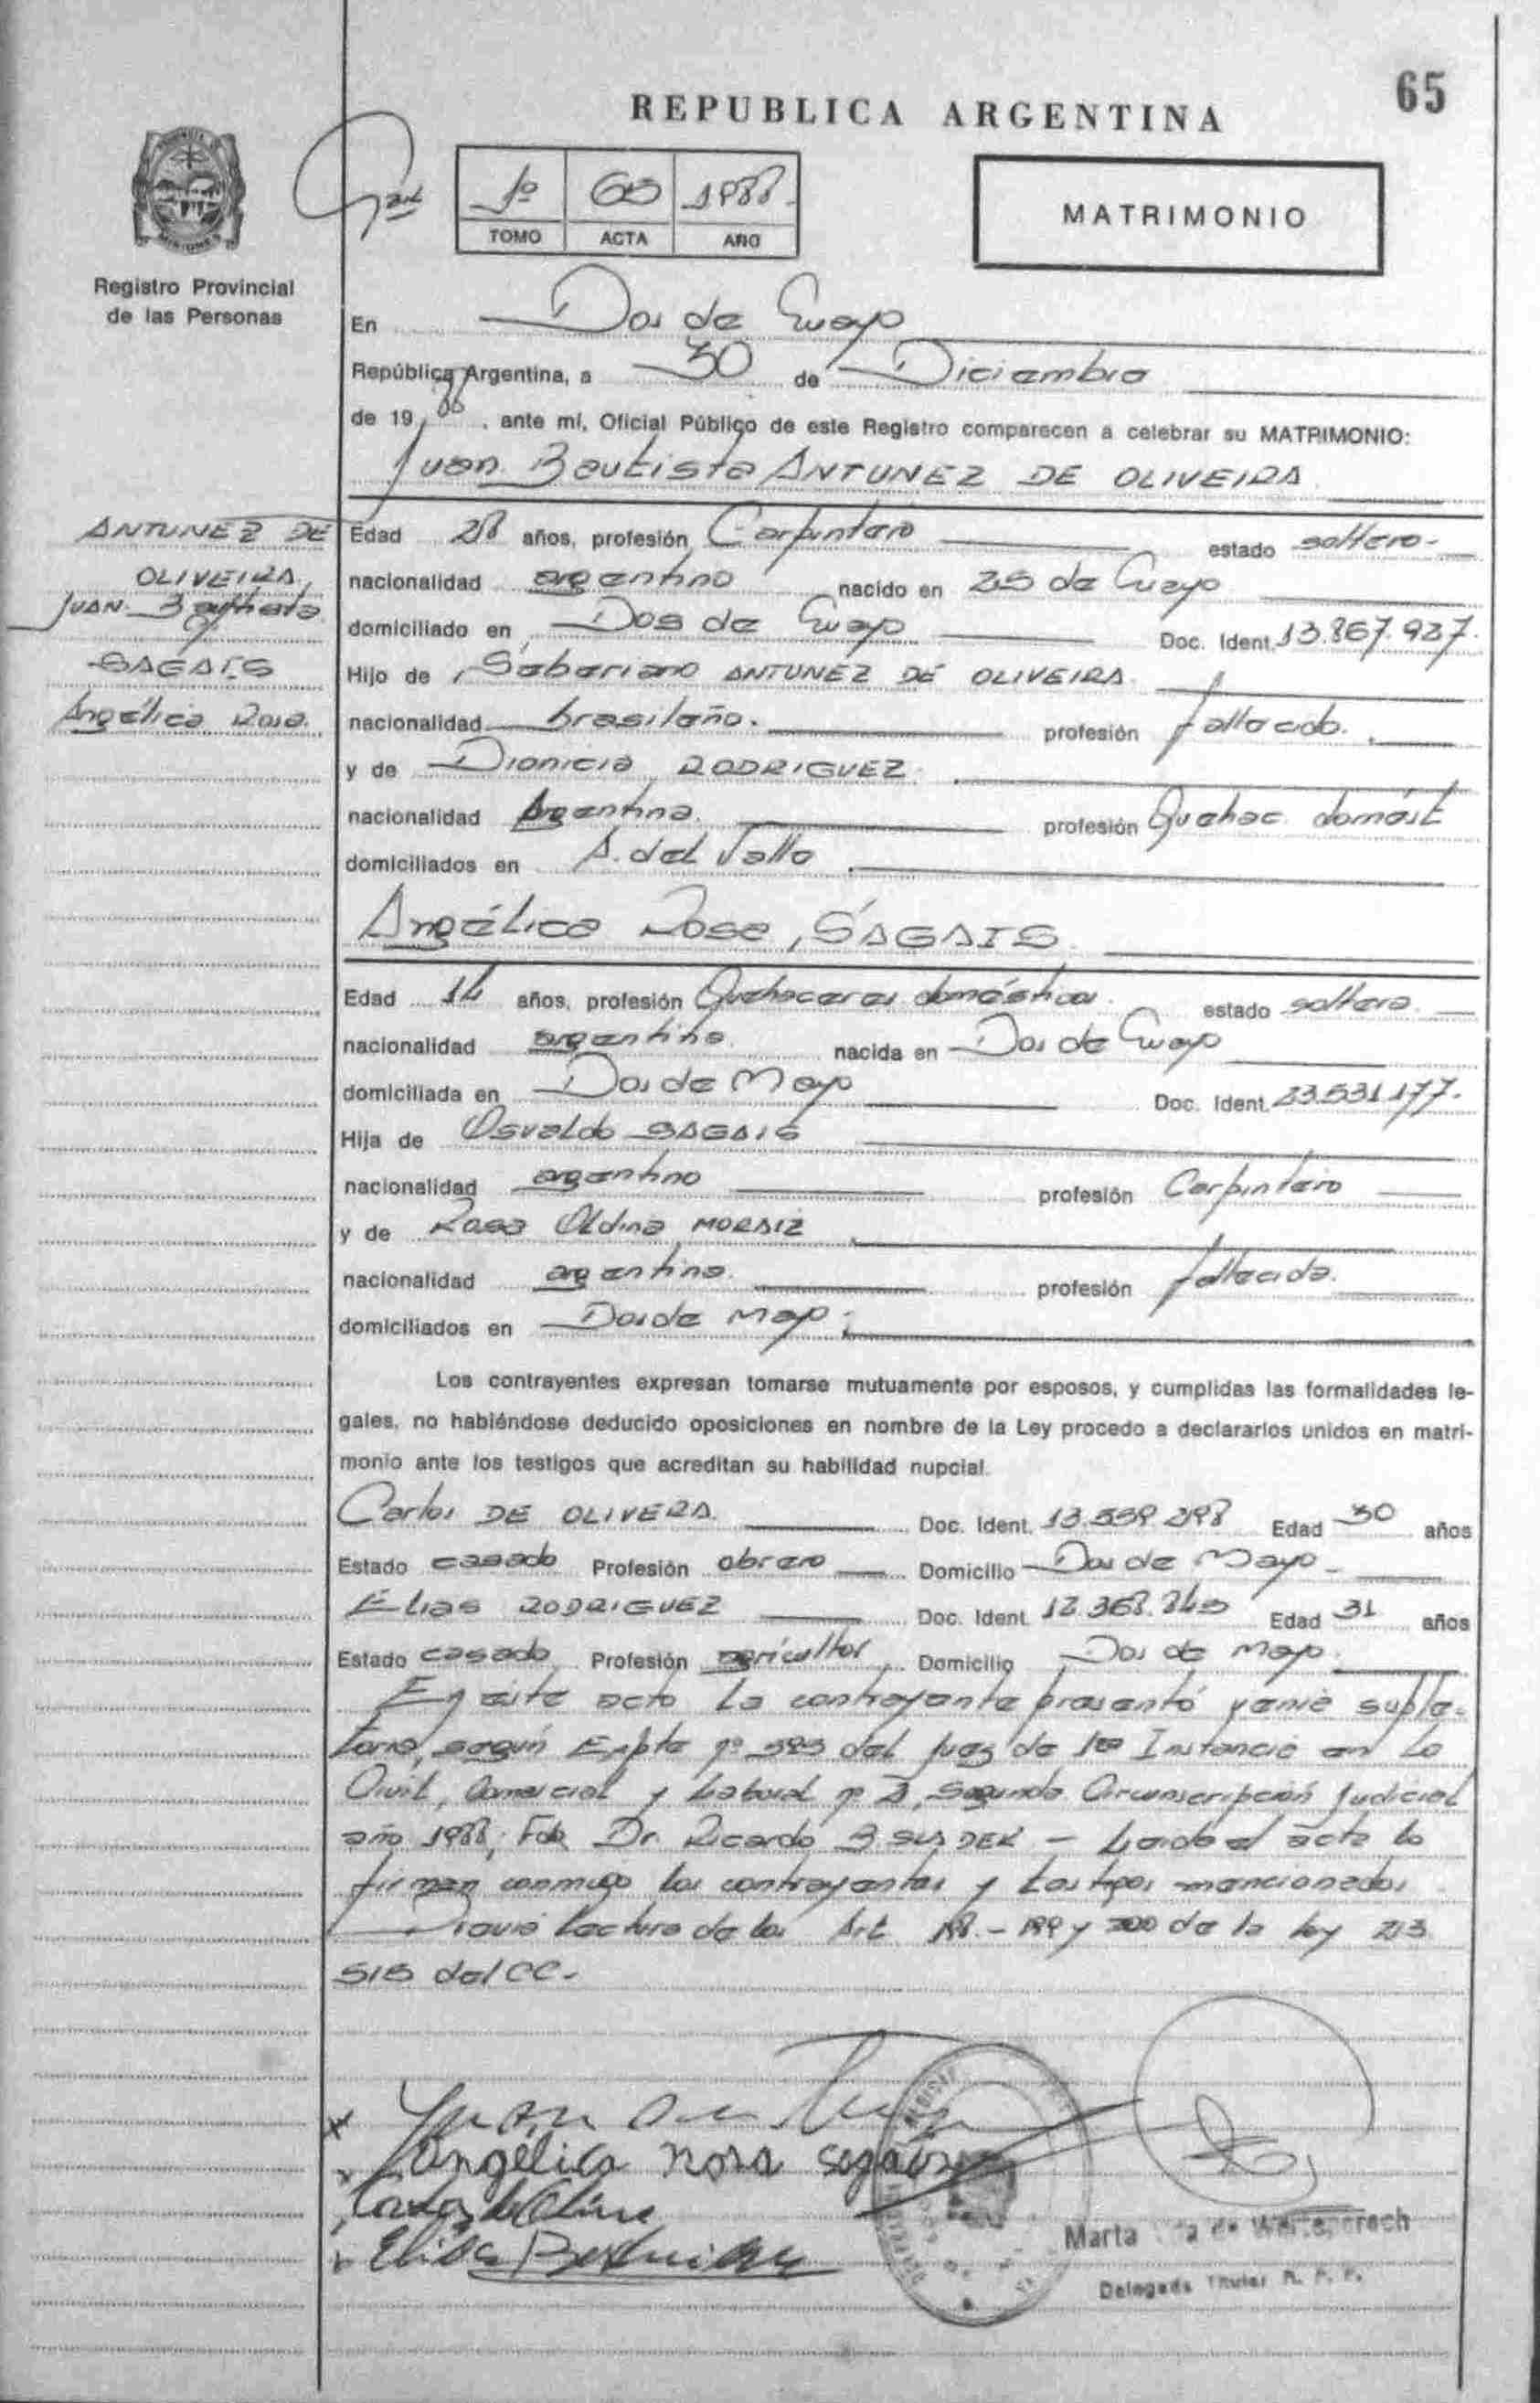 65
REPUBLICA ARGENTINA
1º 65 1988
TOMO ACTA AÑO
MATRIMONIO
Registro Provincial
de las Personas
En Dos de Mayo
República Argentina, a 30 de Diciembre
de 19 88, ante mí, Oficial Público de este Registro comparecen a celebrar su MATRIMONIO:
Juan Bautista ANTUNEZ DE OLIVEIRA
ANTUNEZ DE
OLIVEIRA,
JUAN Bautista
y
SAGAIS
Angélica Rosa.
Edad 28 años, profesión Carpintero estado soltero-
nacionalidad argentino nacido en 25 de Mayo
domiciliado en Dos de Mayo Doc. Ident. 13.867.927.
Hijo de Sabariano ANTUNEZ DE OLIVEIRA
nacionalidad brasileño. profesión fallecido.
y de Dionicia RODRIGUEZ
nacionalidad Argentina. profesión Quehac. domést
domiciliados en A. del Valle
Angélica Rosa, SAGAIS
Edad 14 años, profesión Quehaceres domésticos. estado soltera.
nacionalidad argentina nacida en Dos de Mayo
domiciliada en Dos de Mayo Doc. Ident. 23.531.177.
Hija de Osvaldo SAGAIS
nacionalidad argentino profesión Carpintero
y de Rosa Oldina MORAIZ
nacionalidad argentina. profesión fallecida.
domiciliados en Dos de Mayo.
Los contrayentes expresan tomarse mutuamente por esposos, y cumplidas las formalidades le-
gales, no habiéndose deducido oposiciones en nombre de la Ley procedo a declararlos unidos en matri-
monio ante los testigos que acreditan su habilidad nupcial.
Carlos DE OLIVERA Doc. Ident. 13.559.298 Edad 30 años
Estado casado Profesión obrero Domicilio Dos de Mayo-
Elias RODRIGUEZ Doc. Ident. 12.368.245 Edad 31 años
Estado casado Profesión agricultor Domicilio Dos de Mayo.
En este acto la contrayente presentó venia suple-
toria, según Expte nº 393 del Juez de 1ra Instancia en lo
Civil, Comercial y Laboral nº 2, Segunda Circunscripción Judicial
año 1988; Fdo Dr. Ricardo B. - Leida el acta la
firman conmigo los contrayentes y testigos mencionados
Previa lectura de los Art. 198.-199 y 200 de la ley 23
515 del CC.-
Angélica rosa
Elias
Marta de
Delegada Titular R. P. P.